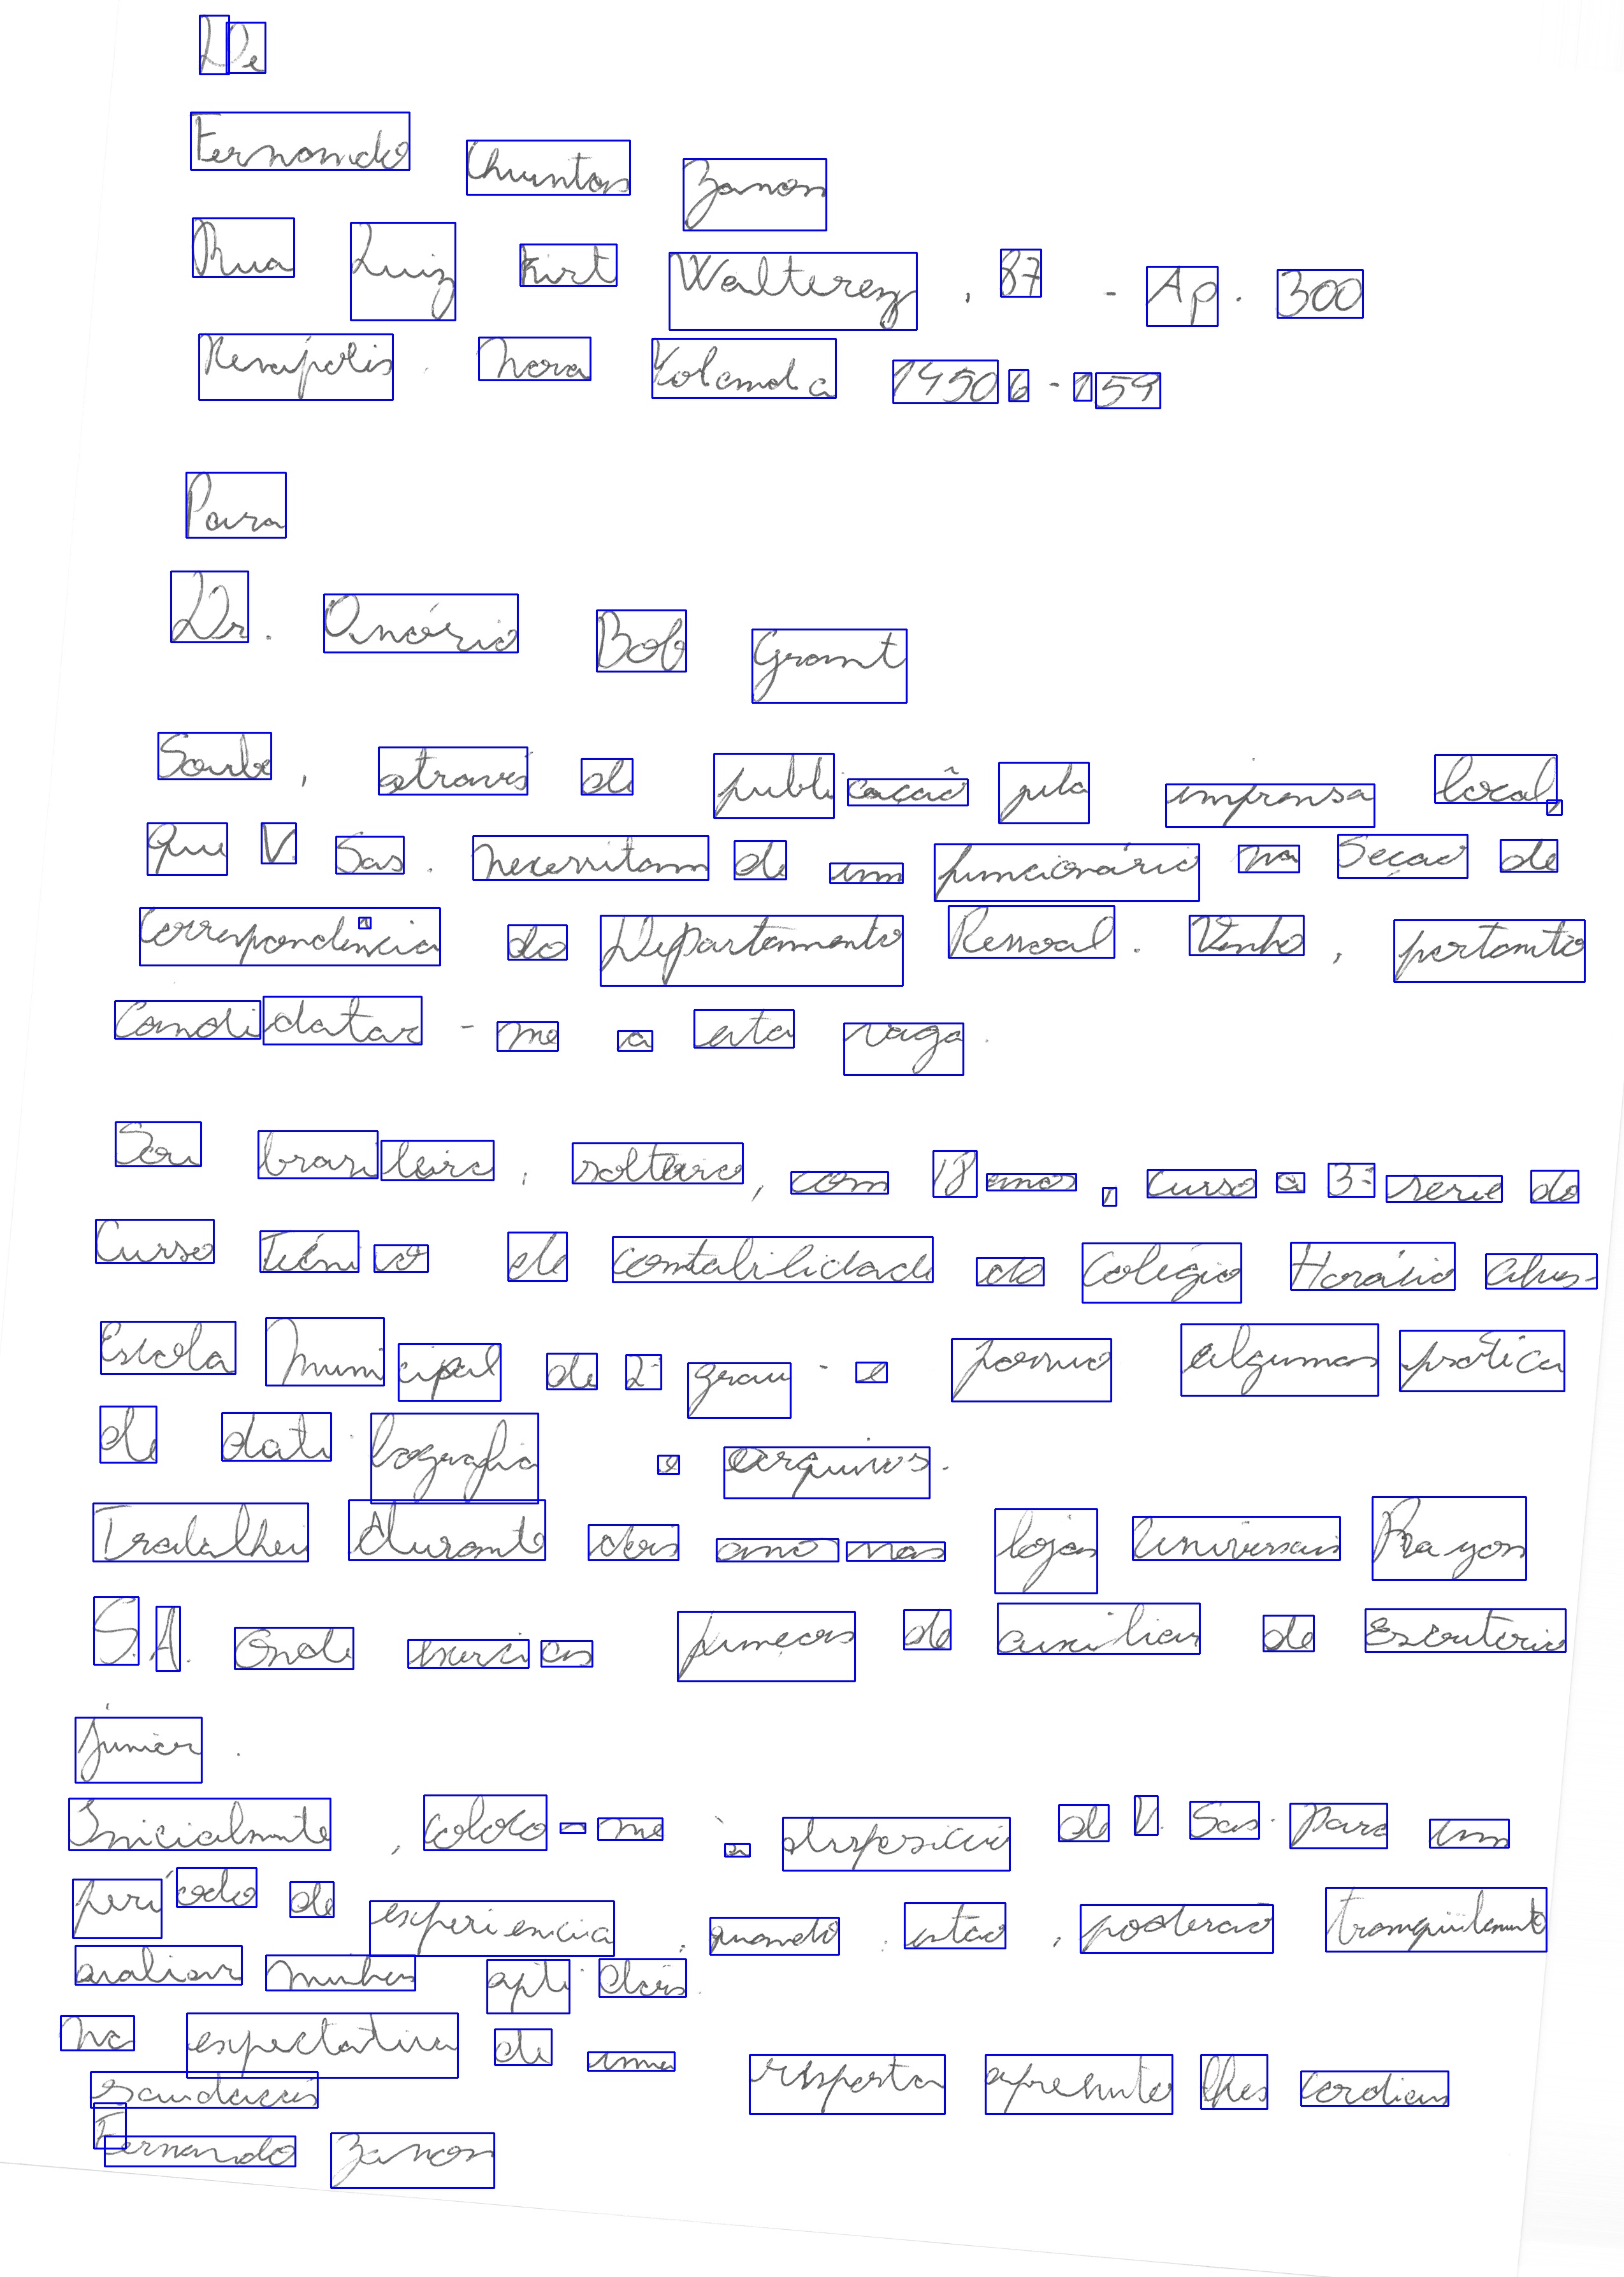 De
Fernando Chuntos Zanon
Rua Luiz Kirt Walterez, 87 - Ap. 300
Nerápolis. Nova Yolanda 14506-159
Para
Dr. Onório Bob Grant
Soube, através de publicação pela imprensa local,
que V. Sas. necessitam de um funcionário na Seção de
Correspondência do Departamento Pessoal. Venho, portanto
Candidatar-me a esta vaga.
Sou brasileiro, solteiro, com 18 anos, curso a 3ª serie do
Curso Técnico de contabilidade do Colégio Horácio
Escola Municipal de 2º grau - e possuo algumas prática
de datilografia e arquivos.
Trabalhei durante dois ano nas lojas Universais Rayon
S.A. Onde exercias funções de auxiliar de Escritorio
júnior.
Inicialmente, coloco-me à disposição de V. Sas. para um
período de experiencia, quando, estao, poderao tranqüilamente
analisar minhas aptidões.
Na expectativa de uma resposta apresento lhes cordiais
saudações
Fernando Zanon